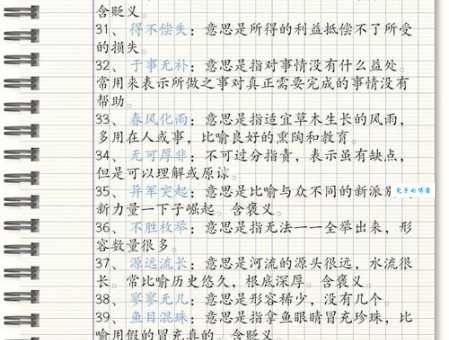 含贬义。
31、 得不偿失：意思是所得的利益抵偿不了所受
的损失。
32、 于事无补：意思是指对事情没有什么益处。
常用来表示所做之事对真正需要完成的事情没有
帮助。
33、 春风化雨：意思是指适宜草木生长的风雨，
多用在人或事，比喻良好的熏陶和教育。
34、 无可厚非：不可过分指责，表示虽有缺点，
但是可以理解或原谅。
35、 异军突起：意思是比喻与众不同的新派别
新力量一下子崛起。含褒义。
36、 不胜枚举：意思是指无法一一全举出来，形
容数量很多。
37、 源远流长：意思是河流的源头很远，水流很
长。常比喻历史悠久，根底深厚。含褒义。
38、 寥寥无几：意思是形容稀少，没有几个。
39、 鱼目混珠：意思是指拿鱼眼睛冒充珍珠，比
喻用假的冒充真的。含贬义。